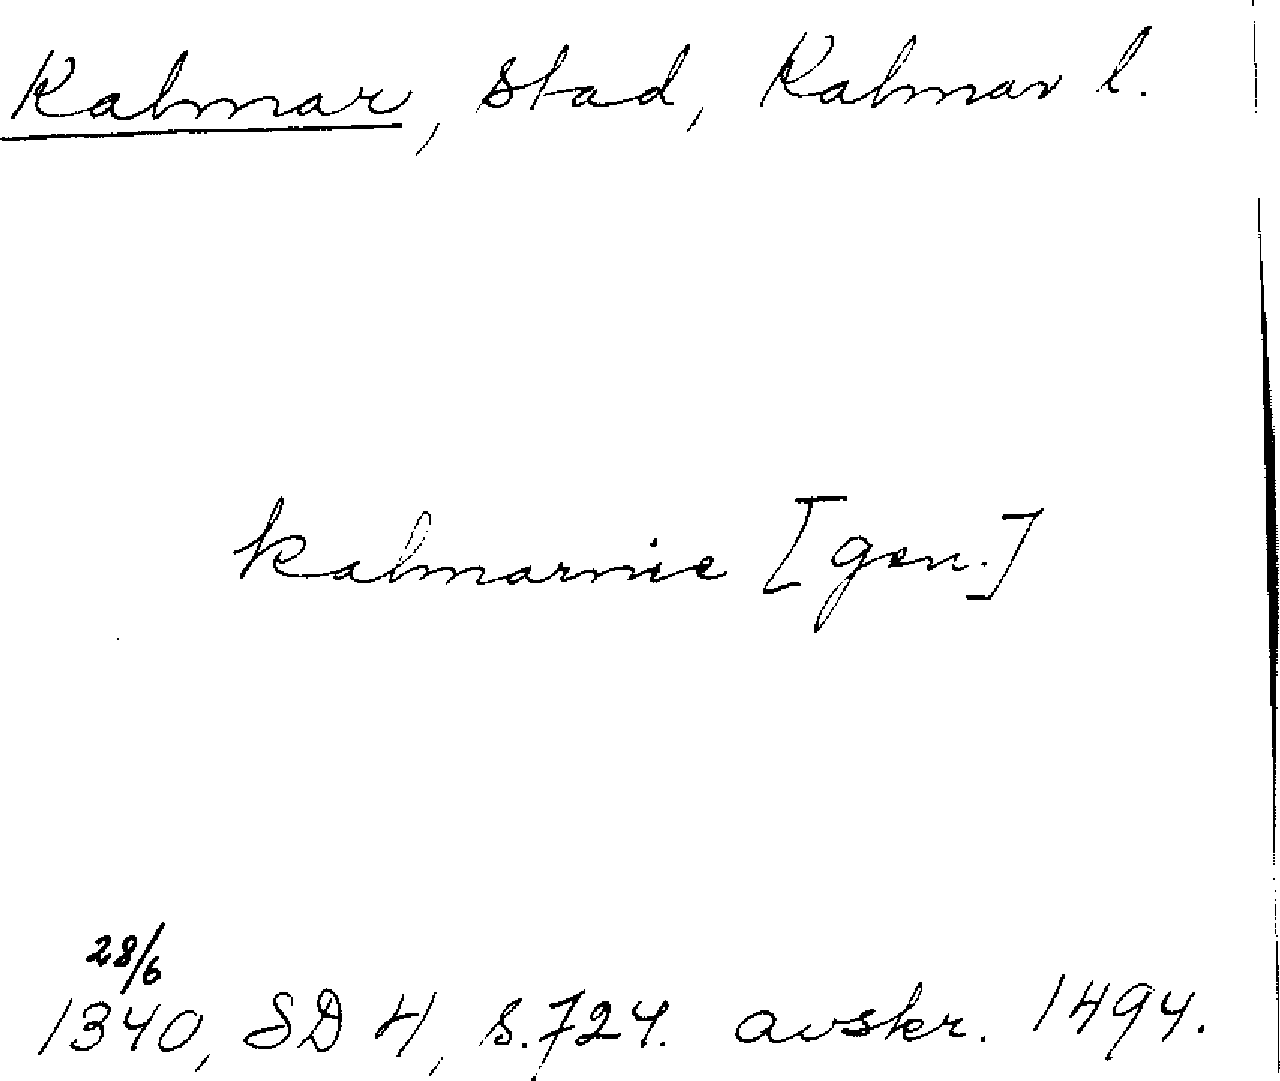 Kalmar, stad, Kalmar l.
kalmarnie [gen.]
28/6
1340, SD 4, s. 724. avskr. 1494.